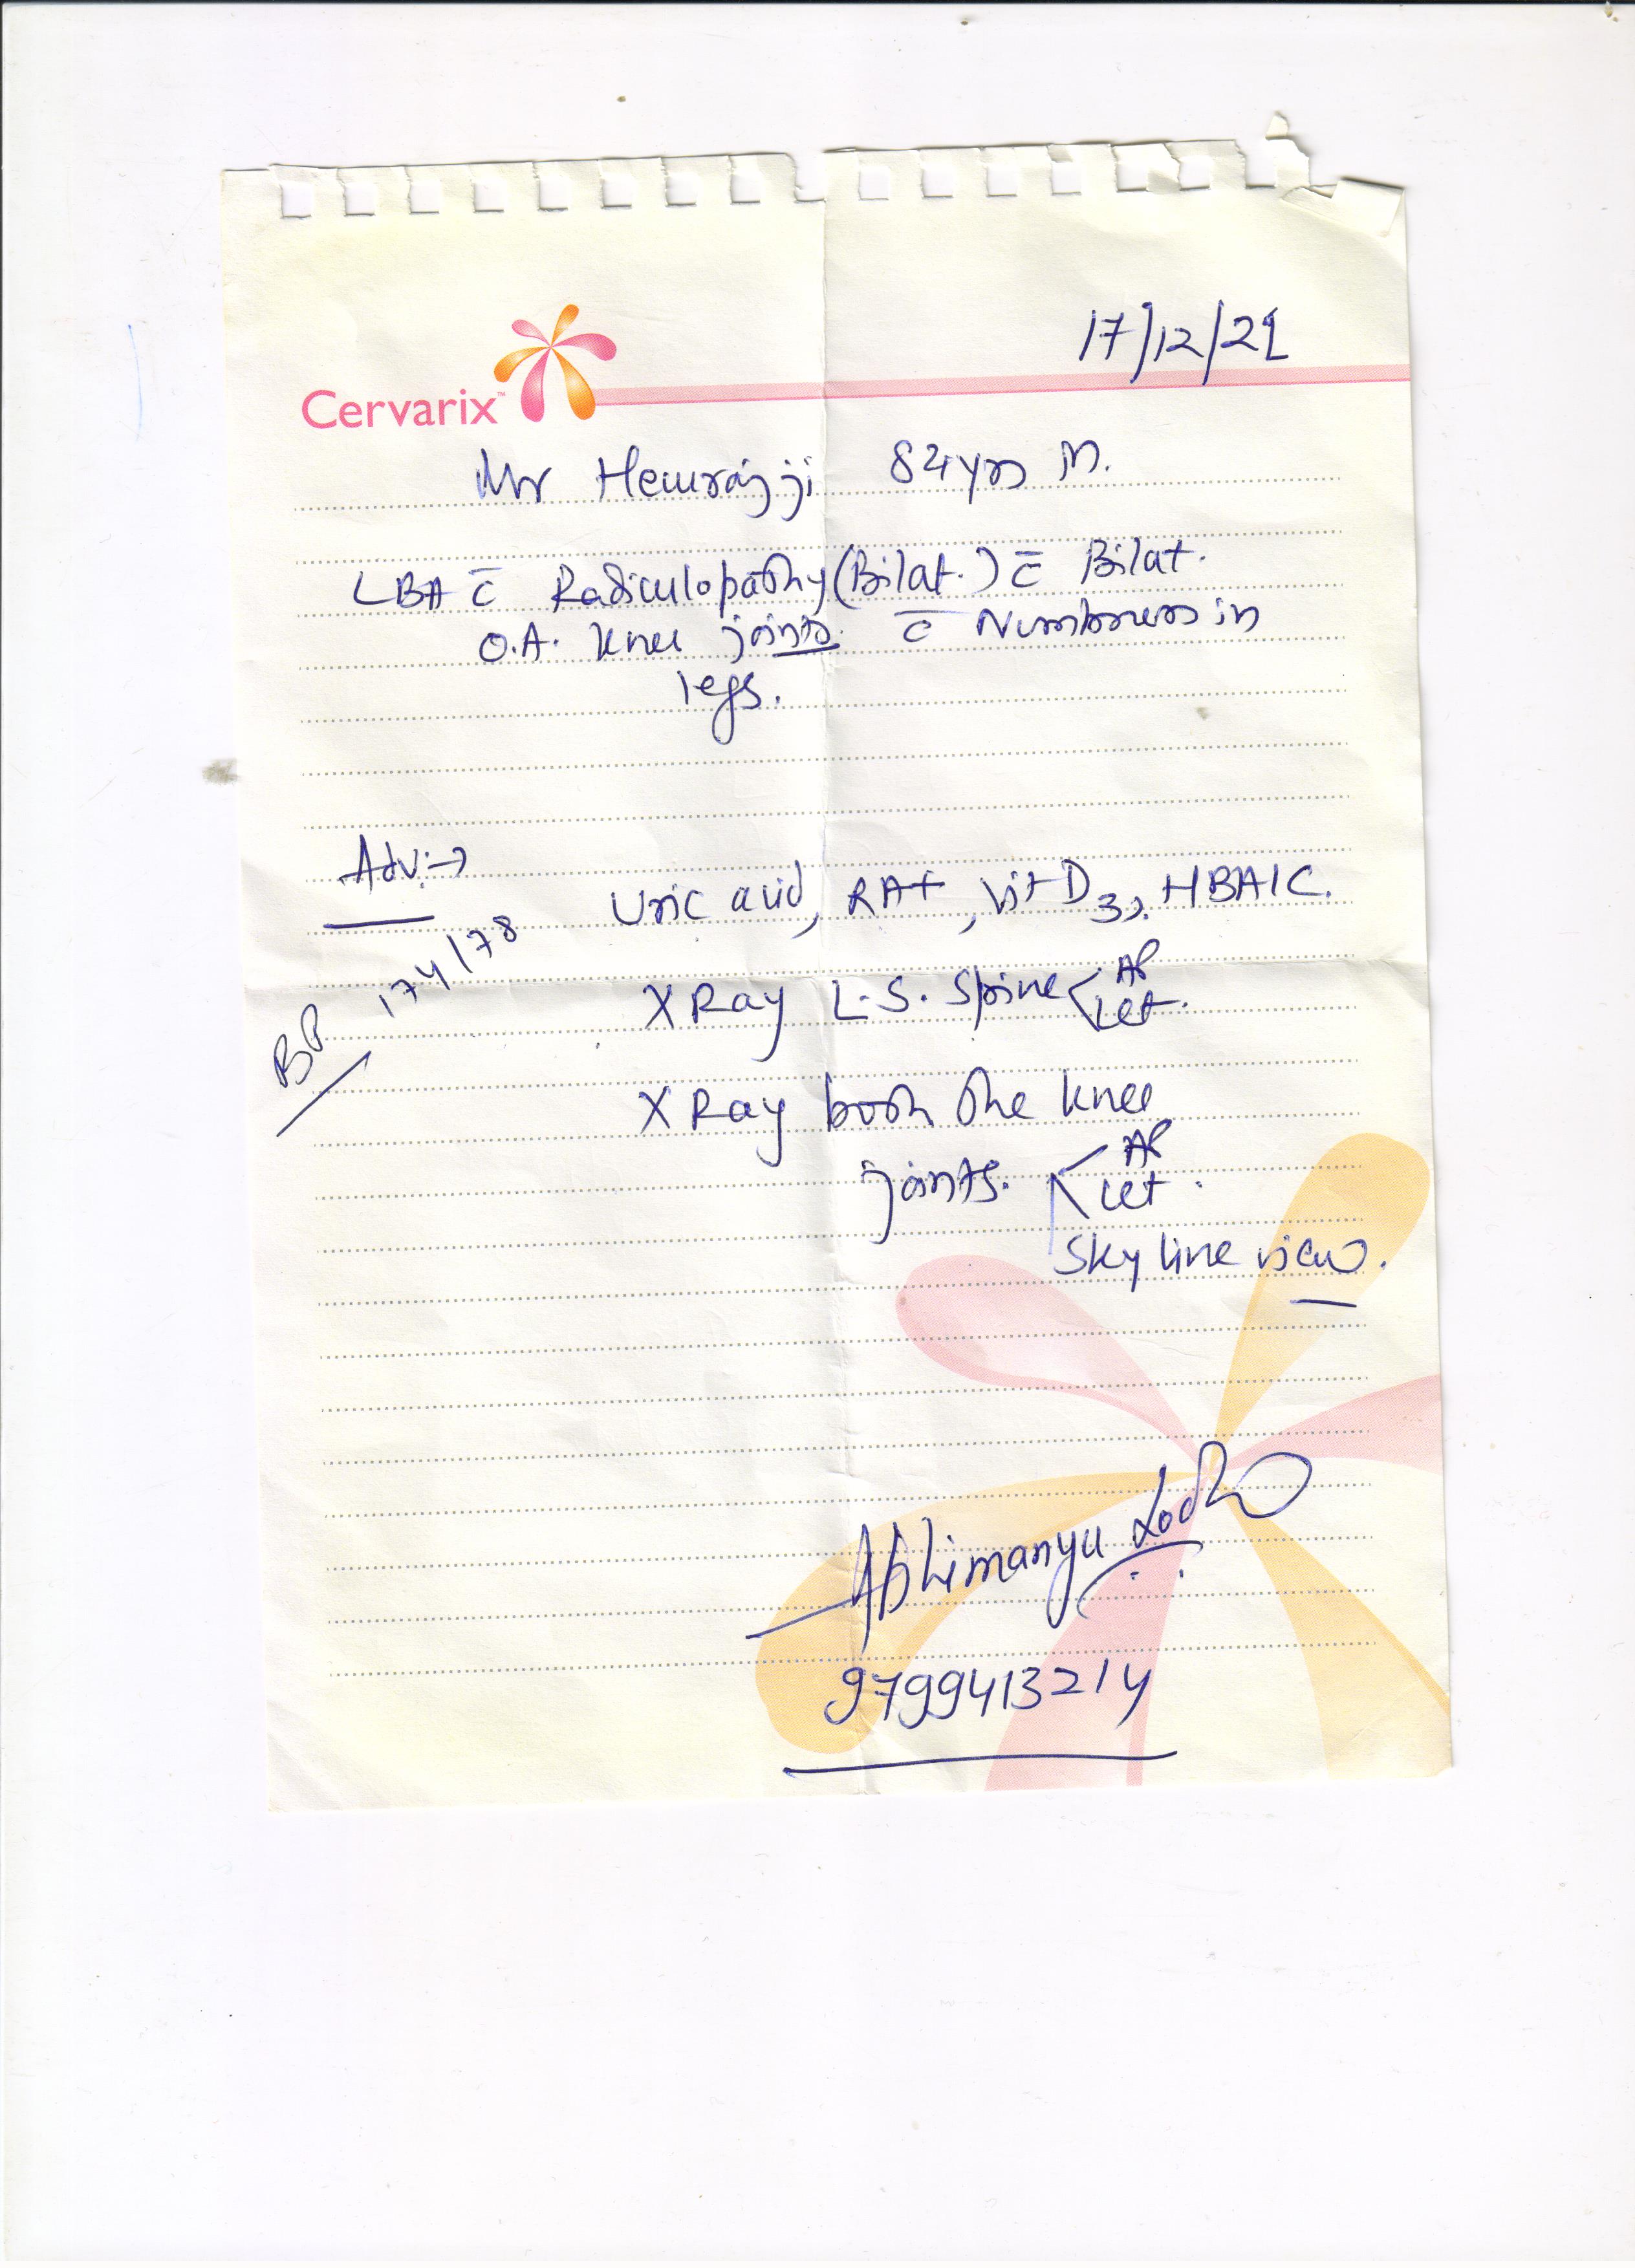 17/12/21
Cervarix™
Mr Hemrajji 84yrs M.
LBA c̄ Radiculopathy (Bilat.) c̄ Bilat.
O.A. Knee joints. c̄ Numbness in
legs.
Adv:→
Uric acid, RAF, Vit D3, HBA1C.
BP 174/78
X Ray L.S. Spine < AP
Lat.
X Ray both the knee
joints. < AP
Lat.
Sky line view.
Abhimanyu
9799413214